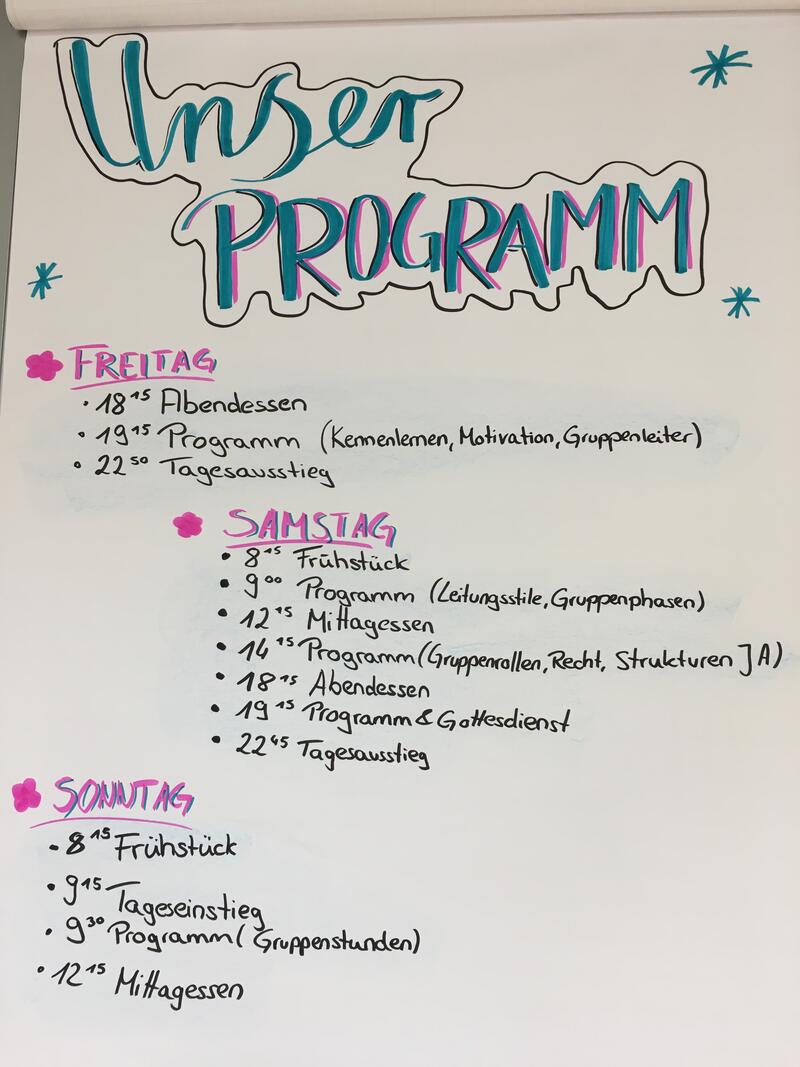 Unser
PROGRAMM
FREITAG
• 18¹⁵ Abendessen
• 19¹⁵ Programm (Kennenlernen, Motivation, Gruppenleiter)
• 22⁵⁰ Tagesausstieg
SAMSTAG
• 8¹⁵ Frühstück
• 9⁰⁰ Programm (Leitungsstile, Gruppenphasen)
• 12¹⁵ Mittagessen
• 14¹⁵ Programm (Gruppenrollen, Recht, Strukturen JA)
• 18¹⁵ Abendessen
• 19¹⁵ Programm & Gottesdienst
• 22⁴⁵ Tagesausstieg
SONNTAG
• 8¹⁵ Frühstück
• 9¹⁵ Tageseinstieg
• 9³⁰ Programm (Gruppenstunden)
• 12¹⁵ Mittagessen